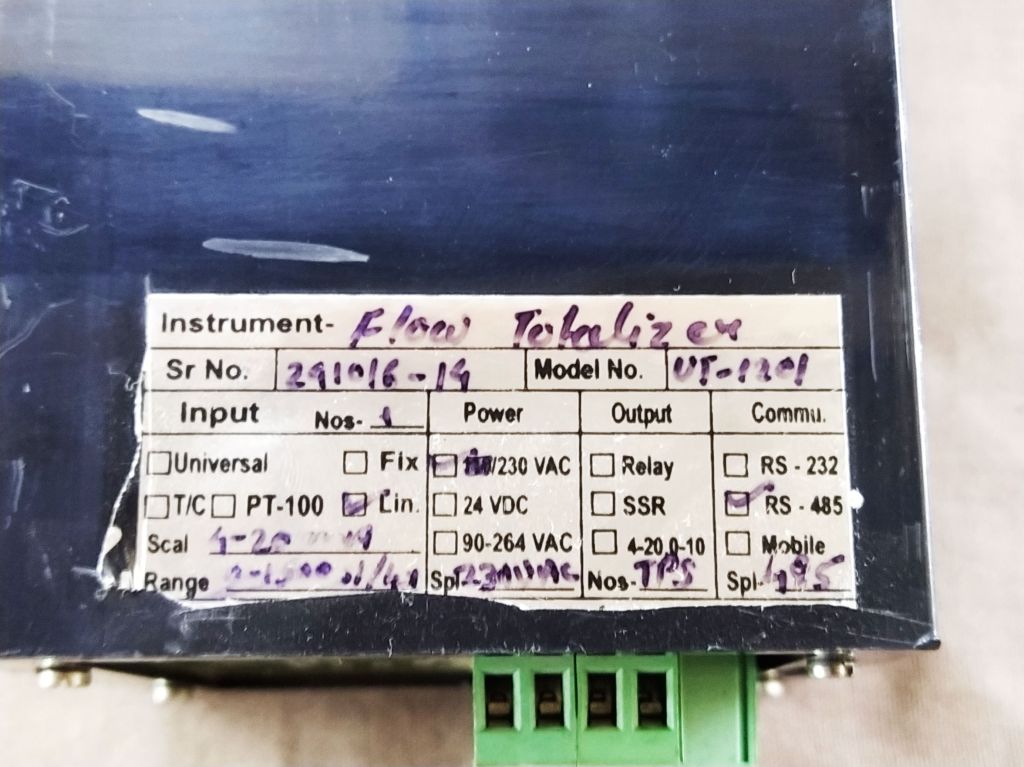 Instrument- Flow Totalizer
Sr No. 291016-14 Model No. UT-1201
Input Nos- 1 Power Output Commu.
Universal Fix /230 VAC Relay RS - 232
T/C PT-100 Lin. 24 VDC SSR RS - 485
Scal 4-20 90-264 VAC 4-20,0-10 Mobile
Range Spl- 230VAC Nos- TPS Spl- 485